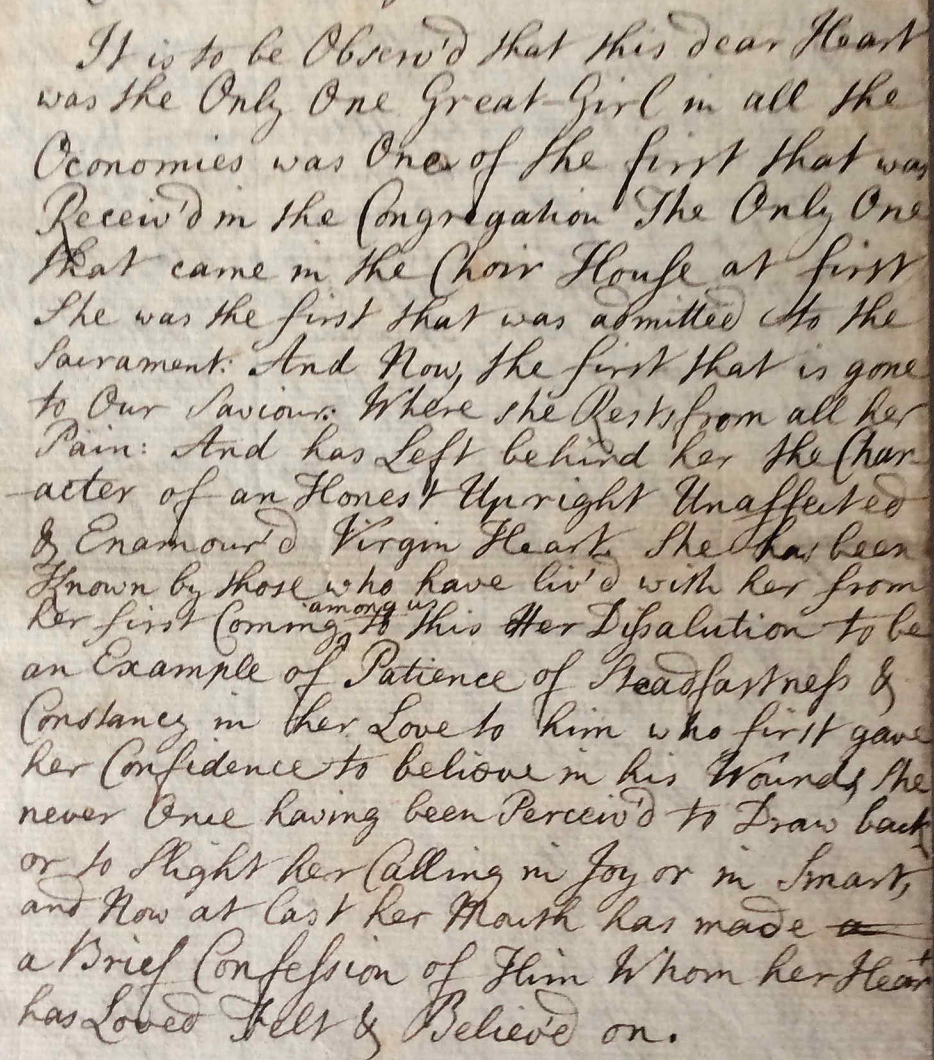 It is to be Observ'd that this dear Heart
was the Only One Great Girl in all the
Oconomies was One of the first that was
Receiv'd in the Congregation The Only One
that came in the Choir House at first
She was the first that was admitted to the
Sacrament: And Now, the first that is gone
to Our Saviour: Where she Rests from all her
Pain: And has Left behind her the Char
-acter of an Honest Upright Unaffected
& Enamour'd Virgin Heart, She has been
Known by those who have liv'd with her from
her first Coming among us to this Her Dissalution to be
an Example of Patience of Steadfastness &
Constancy in her Love to him who first gave
her Confidence to believe in his Wounds, She
never Once having been Perceiv'd to Draw back
or to Slight her Calling in Joy or in Smart,
and Now at last her Mouth has made a
a Brief Confession of Him Whom her Heart
has Loved Felt & Believ'd on.